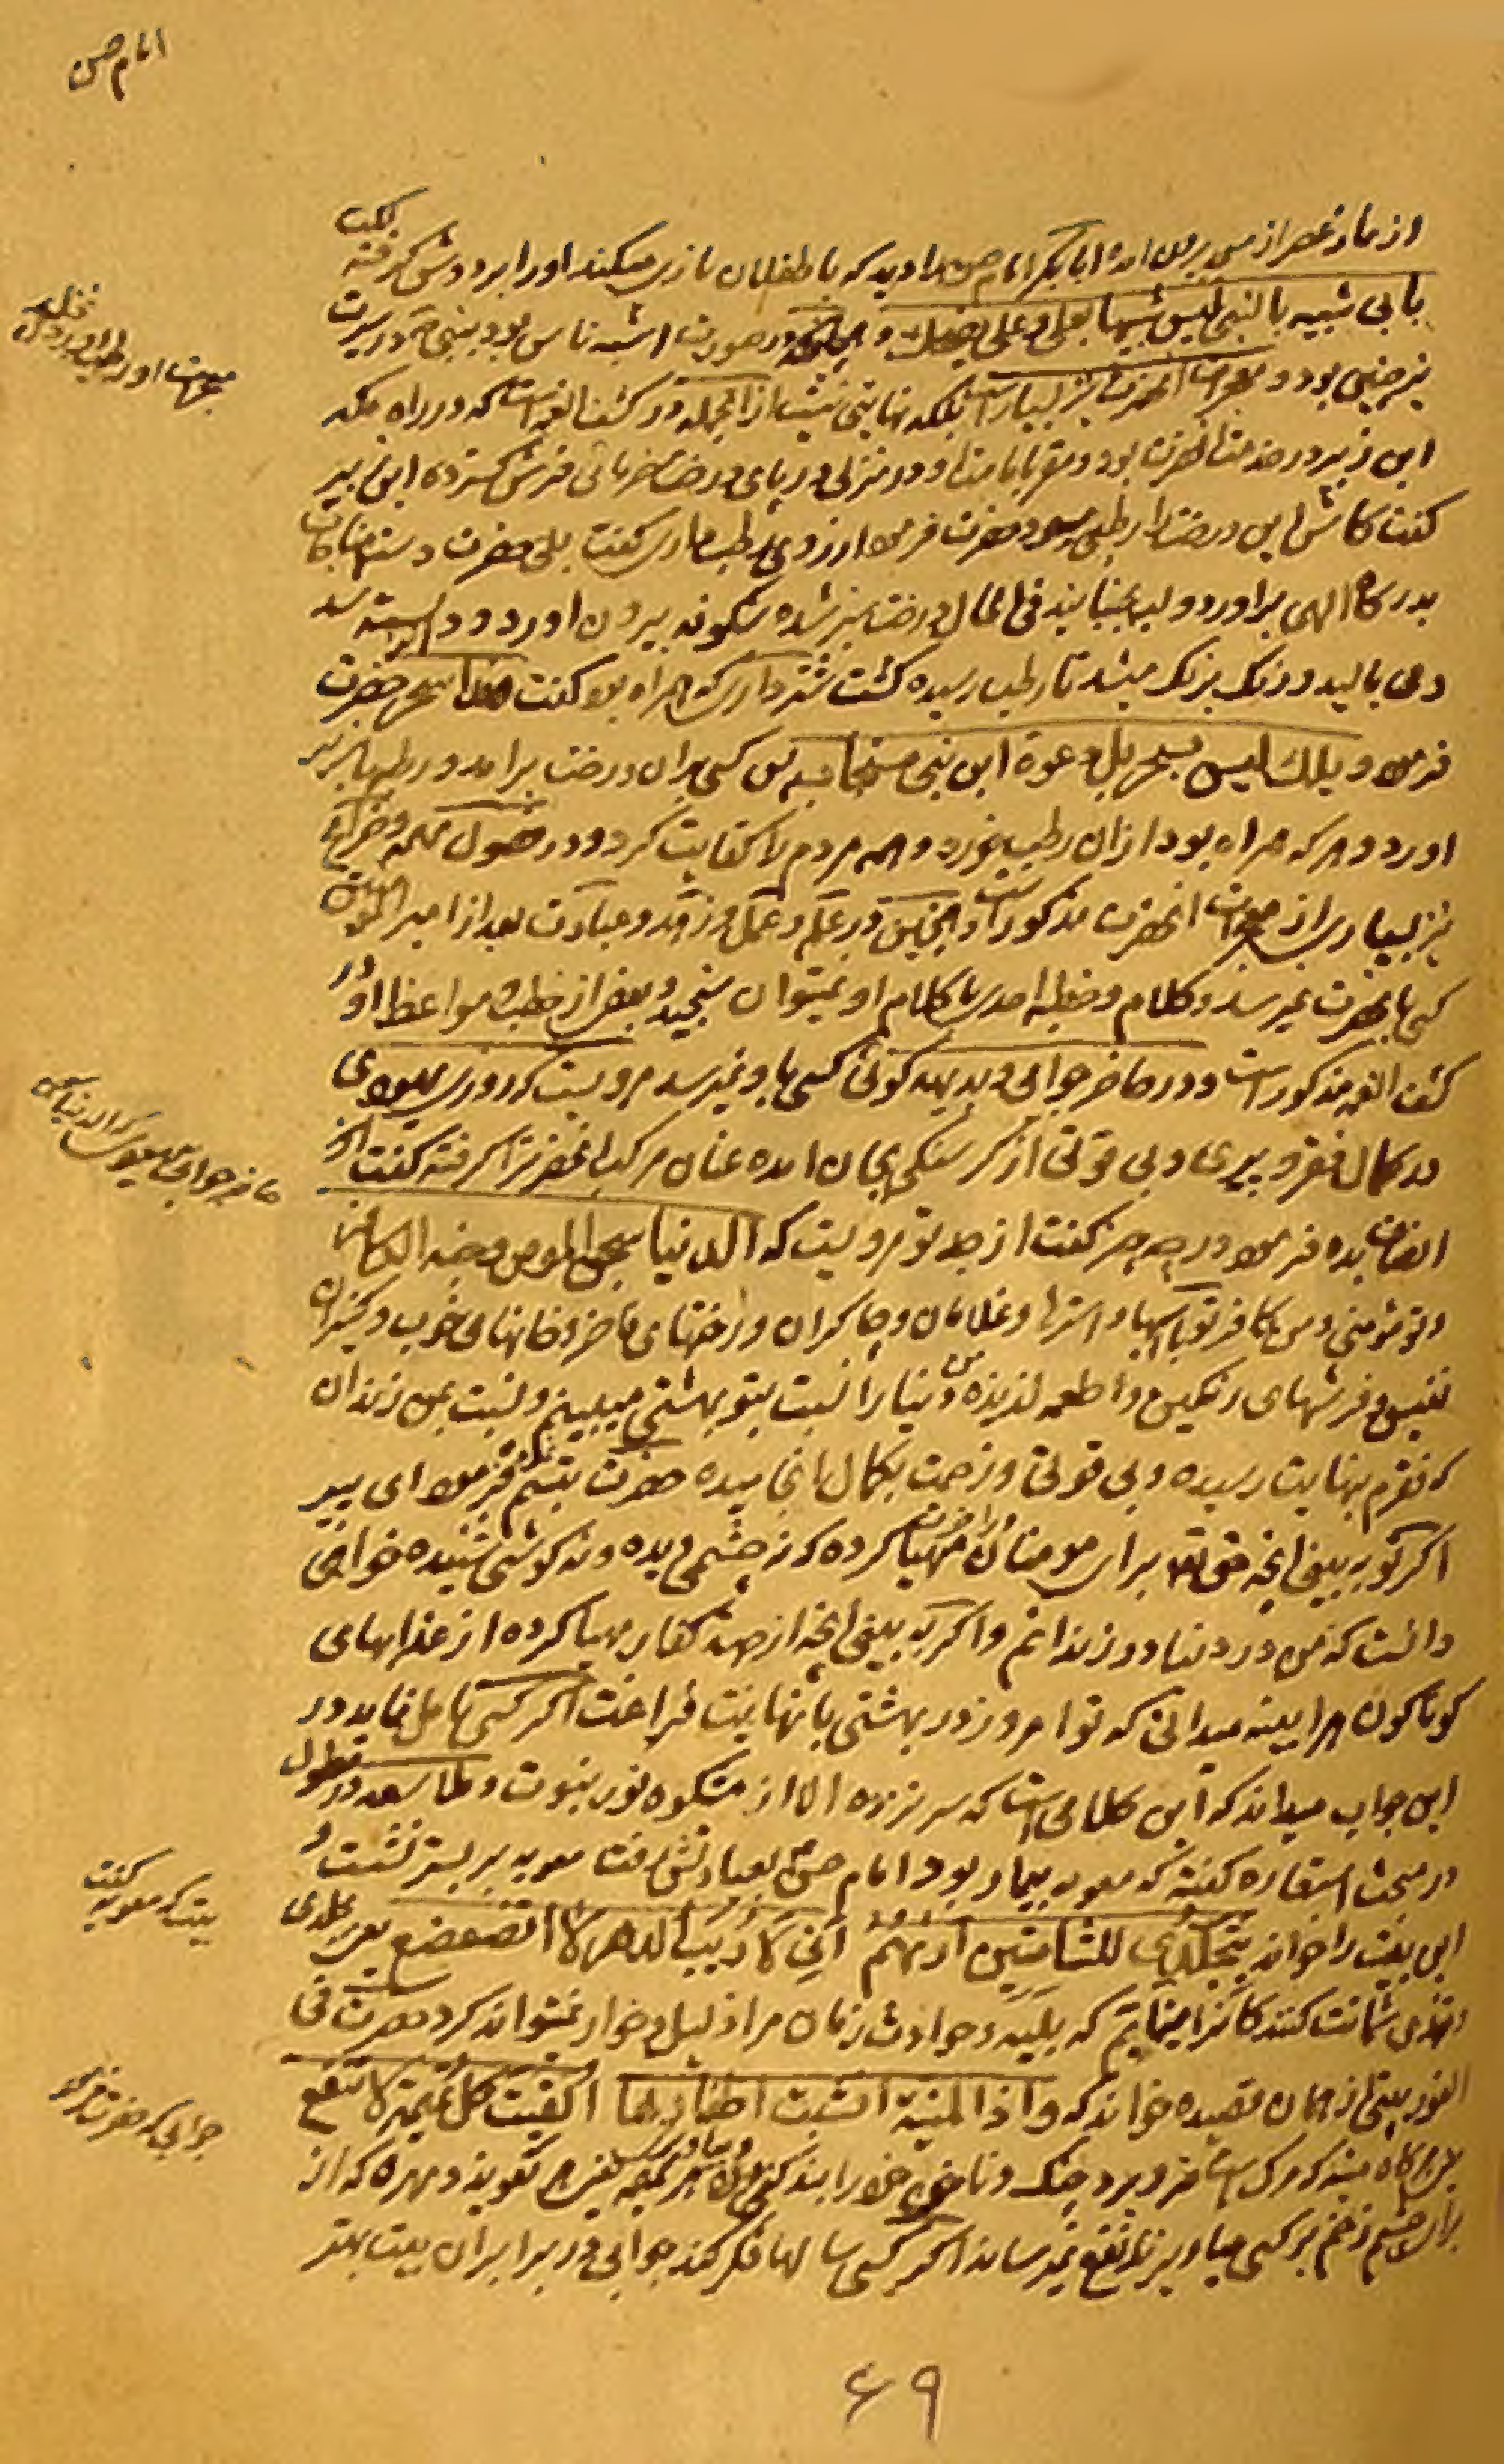 امام حسن
از نماز عصر از مسجد برون آمده ابابکر امام حسن را دید که با طفلان بازی میکند او را بر دوش گرفته گفت
بابی شبیه بالنبی لیس شبیها بعلی و علی یضحک و در صورت اشبه ناس بود بنبی در سیرت
نیز چنین بود و معجزات انحضرت نیز بسیار است بلکه نهایتی نیست از انجمله در کشف الغمه است که در راه مکه
ابن زبیر در خدمت انحضرت بود و در منزلی در پای درخت خرمائی فرش گسترده ابن زبیر
گفت کاش این درخت را رطبی میبود حضرت فرمود ارزوی رطب داری گفت بلی حضرت دست مناجات
بدرگاه الهی براورد و لب بجنبانید فی الحال درخت سبز شده شکوفه بیرون اورد و دانه بسته شد
و می بالید و رنگ برنگ میشد تا رطب رسیده گشت شترداری که همراه بود گفت هذا سحر حضرت
فرمود ویلک لیس بسحر بل دعوة ابن نبی مستجابه پس کسی بران درخت برامد و رطبها بزیر
اورد و هر که همراه بود از ان رطب بخورد و همه مردم را کفایت کرد و در فصول مهمه و خرایج
نیز بسیاری از معجزات انحضرت مذکور است و همچنین در علم و عمل و زهد و عبادت بعد از امیر المؤمنین
کسی بانحضرت نمیرسد و کلام و خطبه احدی با کلام او نمیتوان سنجید و بعضی از خطب و مواعظ او در
کشف الغمه مذکور است و در حاضر جوابی و بدیهه گوئی کسی باو نمیرسد مرویست که روزی یهودی
در کمال فقر و پیری و بی قوتی از گرسنگی بجان امده عنان مرکب انحضرت را گرفته گفت
انصاف بده فرمود در چه چیز گفت از جد تو مرویست که الدنیا سجن المومن و جنة الکافر
و تو مؤمنی و من کافر تو با اسبها و استرها و غلامان و چاکران و رختهای فاخر و خانهای خوب و کنیزان
نفیس و فرشهای رنگین و اطعمه لذیذه و من دنیا را نسبت بتو بهشتی میبینم و نسبت بمن زندان
که فقرم بنهایت رسیده و بی قوتی و زحمت بکمال انجامیده حضرت تبسم فرمود ای پیر
اگر تو به بینی انچه حق تعالی برای مومنان در اخرت مهیا کرده که نه چشمی دیده و نه گوشی شنیده خواهی
دانست که من در دنیا در زندانم و اگر به بینی انچه از جهت کفار مهیا کرده از عذابهای
گوناگون هراینه میدانی که تو امروز در بهشتی با نهایت فراغت اگر کسی تامل نماید در
این جواب میداند که این کلامی است که سر نزده الا از مشکوه نور نبوت و ملا سعد در مطول
در مبحث استعاره گفته که معویه بیمار بود امام حسن بعیادتش رفت معویه بر بستر نشست و
این بیت را خواند بتجلدی للشامتین اریهم انی لریب الدهر لا اتضعضع یعنی بجلدی
و تندی شماتت کنندگانرا مینمایم که بلیه و حوادث زمان مرا ذلیل و خوار نمیتواند کرد حضرت فی
الفور بیتی از همان قصیده خواند که و اذا المنیة انشبت اظفارها الفیت کل تمیمة لا تنفع
یعنی هرگاه بیشه که مرگ است فرو برد چنگ و ناخن خود را بند کنی هر تمیمه یعنی هر تعویذ و مهره که از
برای چشم زخم بر کسی میاویزند نفع نمیرساند اگر کسی سالها فکر کند جوابی در برابر این بیت بهتر
بیت که معویه گفت
جوابی که حضرت فرمود
۶۹